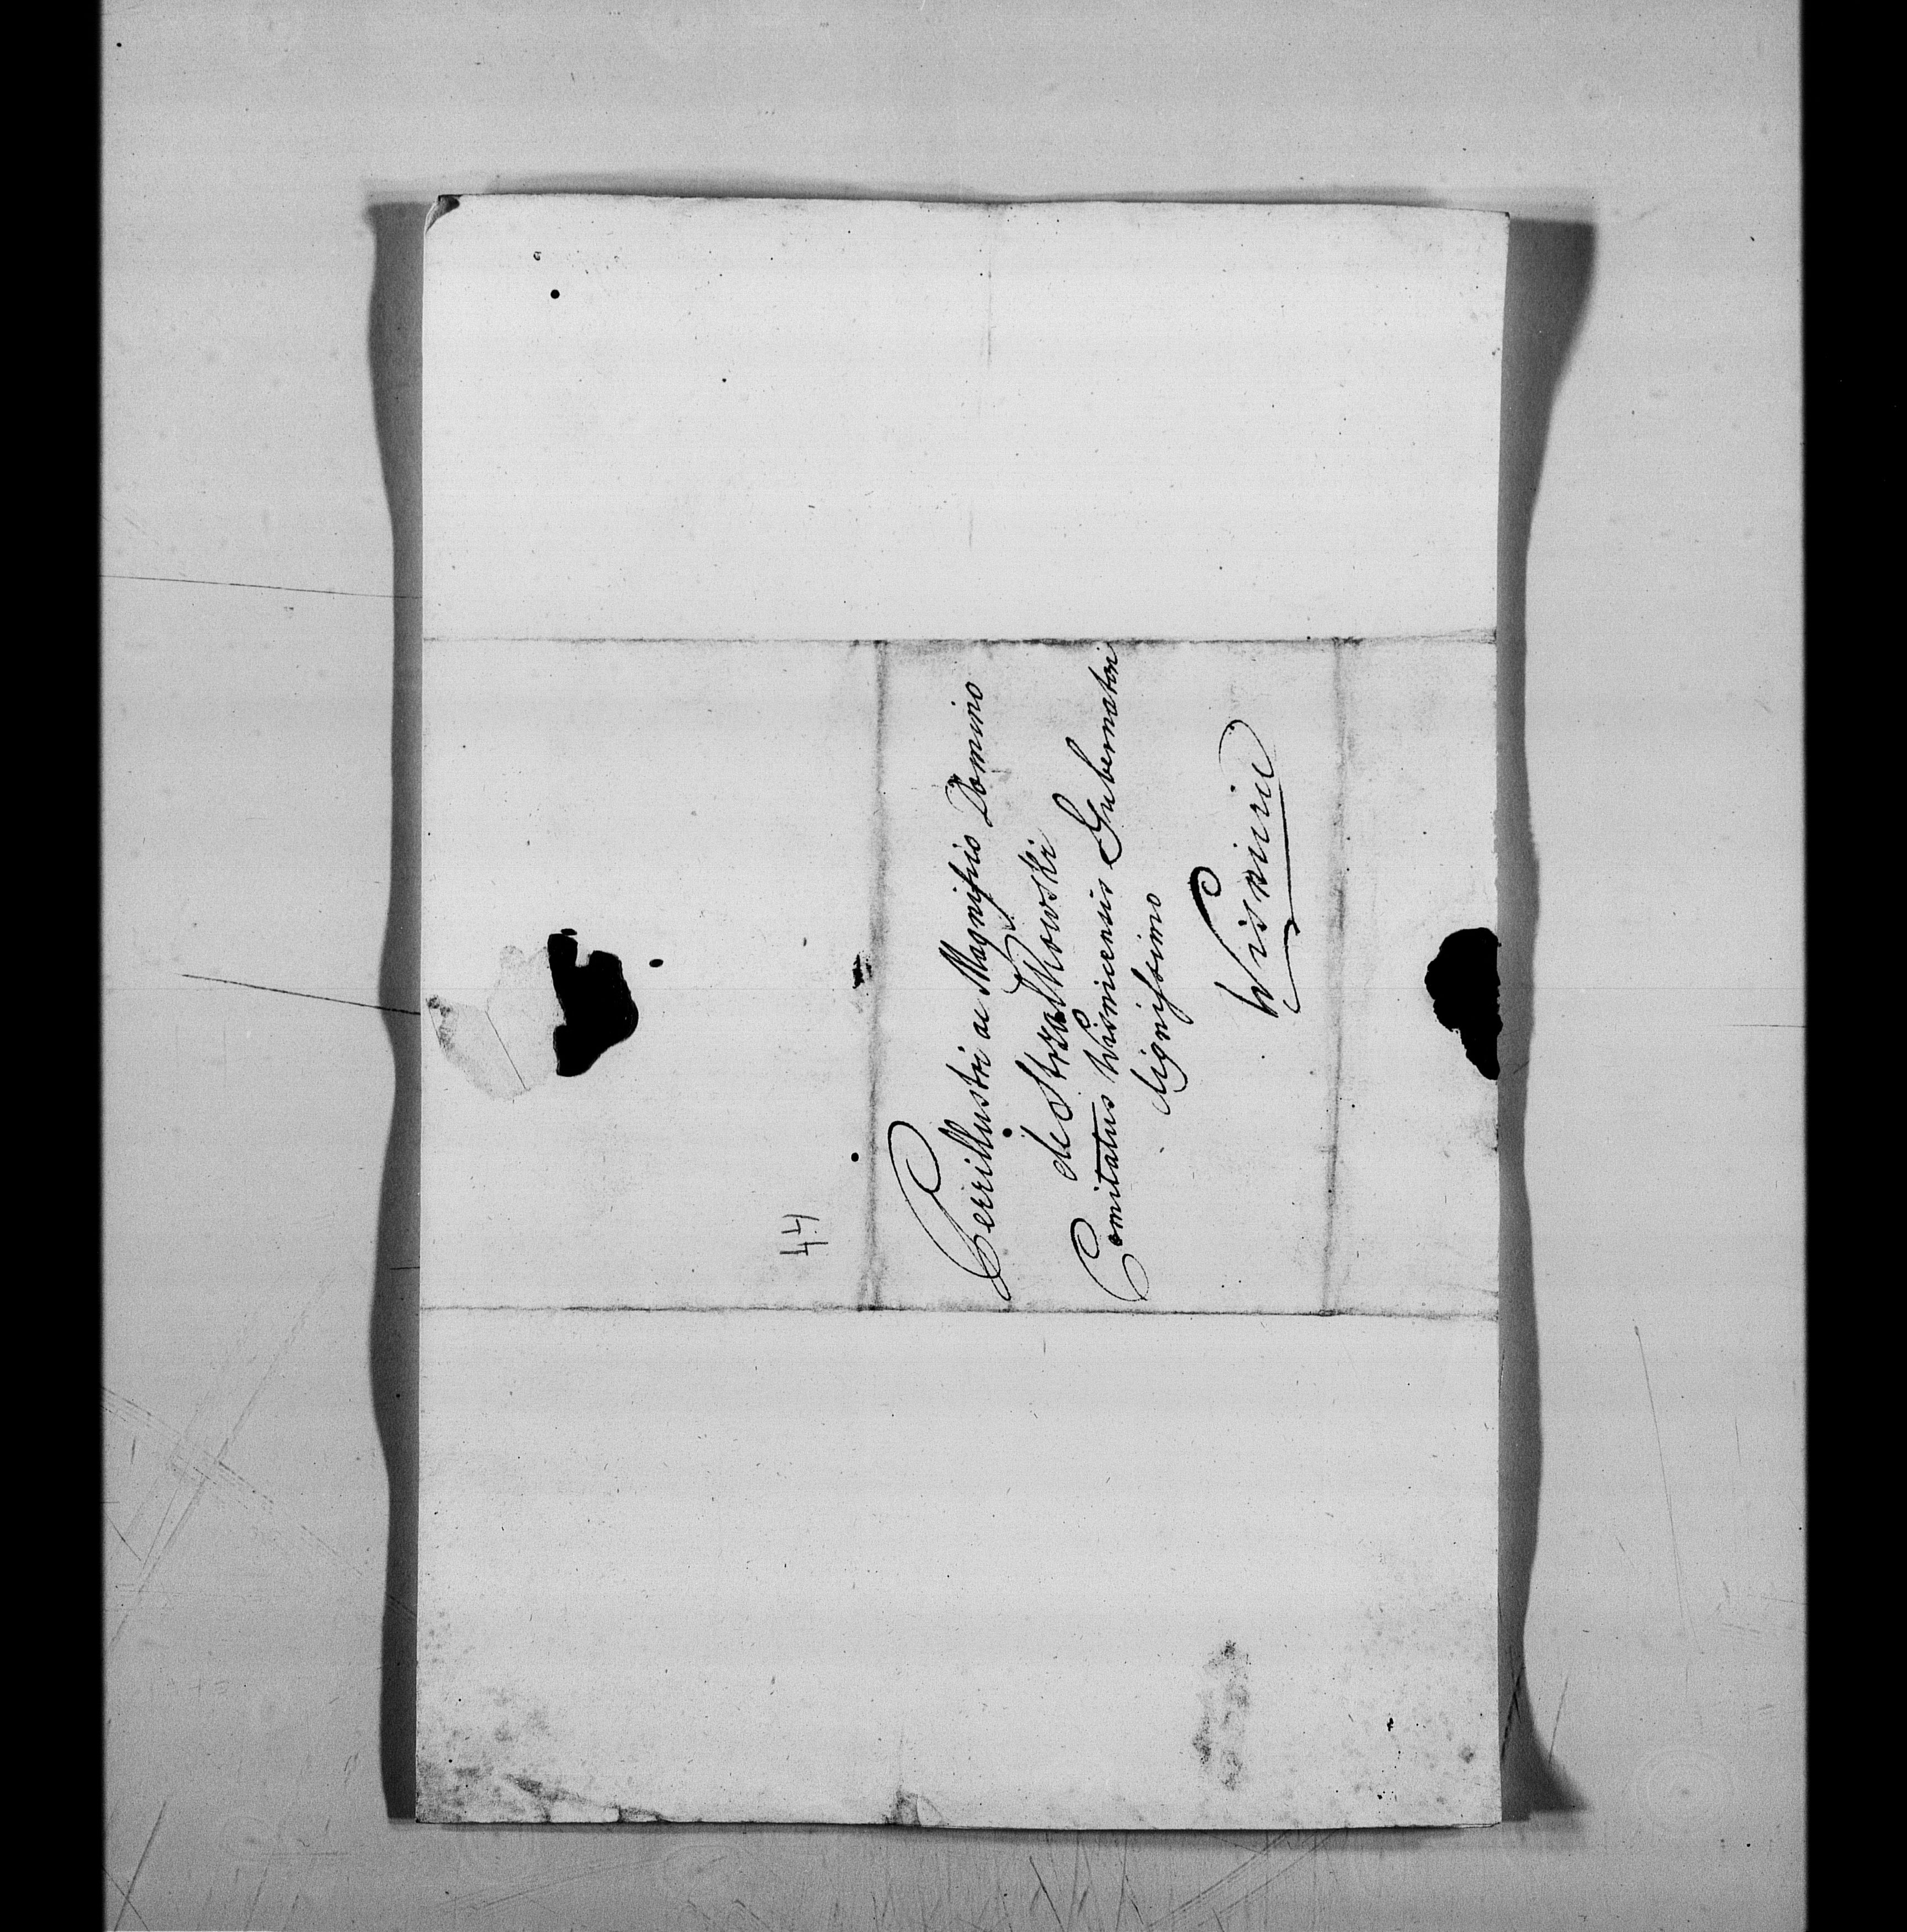 44
Perillustri ac Magnifio Domino
de Strzałkowski
Comitatus Wisnicensis Gubernatori
dignissimo
Wisnicie